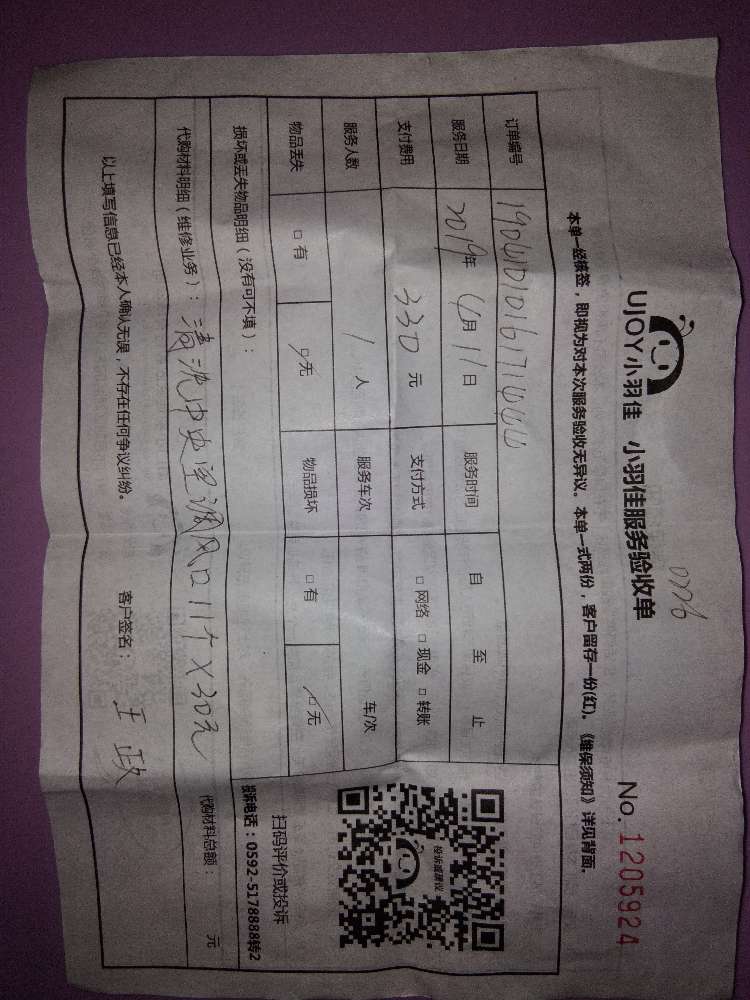 0776
UJOY小羽佳 小羽佳服务验收单 No. 1205924
本单一经核签，即视为对本次服务验收无异议。本单一式两份，客户留存一份(红)。《维保须知》详见背面。
订单编号
服务日期 2019年 6月 11日 服务时间 自 至 止
支付费用 330 元 支付方式 □ 网络 □ 现金 □ 转账
服务人数 1 人 服务车次 车/次
物品丢失 □ 有 □ 无 物品损坏 □ 有 □ 无
损坏或丢失物品明细（没有可不填）：
代购材料明细（维修业务）：清洗中央空调风口11个X30元 代购材料总额： 元
以上填写信息已经本人确认无误，不存在任何争议纠纷。 客户签名： 王政
投诉或建议
扫码评价或投诉
投诉电话：0592-5178888转2